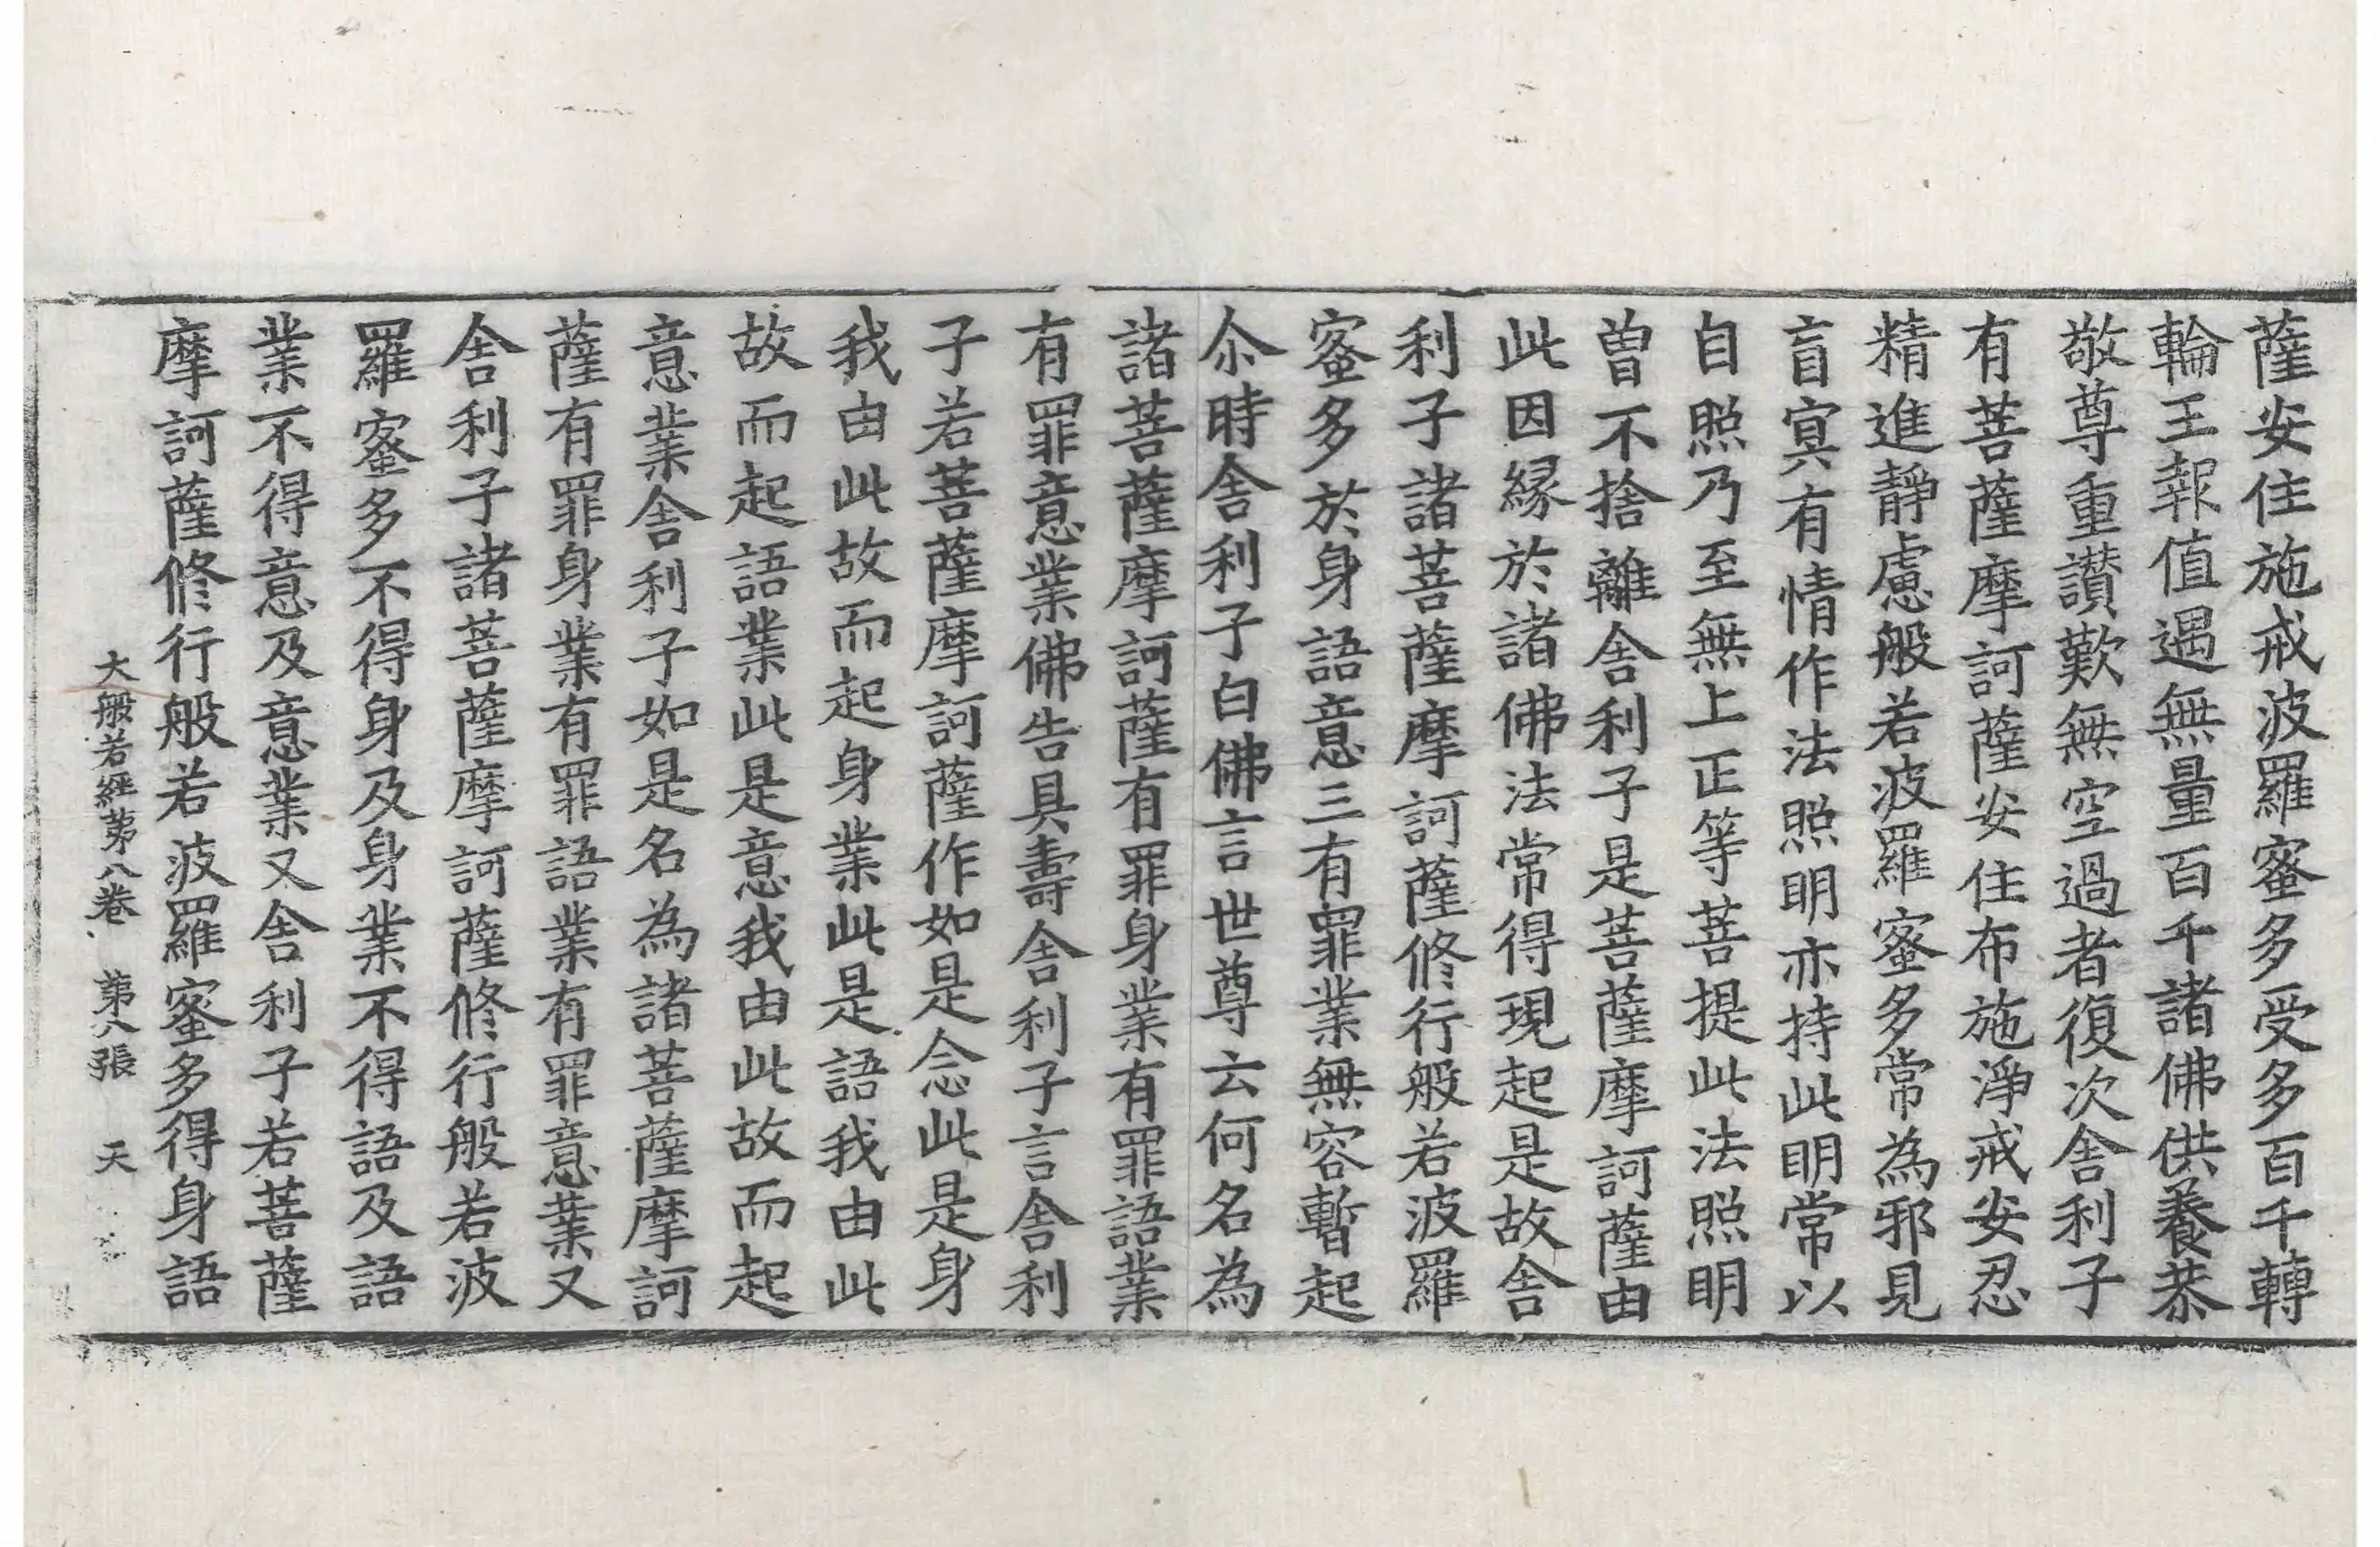 薩安住施戒波羅蜜多受多百千轉
輪王報值遇無量百千諸佛供養恭
敬尊重讃歎無空過者復次舍利子
有菩薩摩訶薩安住布施淨戒安忍
精進靜慮般若波羅蜜多常為邪見
盲㝠有情作法照明亦持此明常以
自照乃至無上正等菩提此法照明
曽不捨離舍利子是菩薩摩訶薩由
此因縁於諸佛法常得現起是故舍
利子諸菩薩摩訶薩修行般若波羅
蜜多於身語意三有罪業無容暫起
尒時舍利子白佛言世尊云何名為
諸菩薩摩訶薩有罪身業有罪語業
有罪意業佛告具壽舍利子言舍利
子若菩薩摩訶薩作如是念此是身
我由此故而起身業此是語我由此
故而起語業此是意我由此故而起
意業舍利子如是名為諸菩薩摩訶
薩有罪身業有罪語業有罪意業又
舍利子諸菩薩摩訶薩修行般若波
羅蜜多不得身及身業不得語及語
業不得意及意業又舍利子若菩薩
摩訶薩修行般若波羅蜜多得身語
大般若經苐八卷 苐八張 天